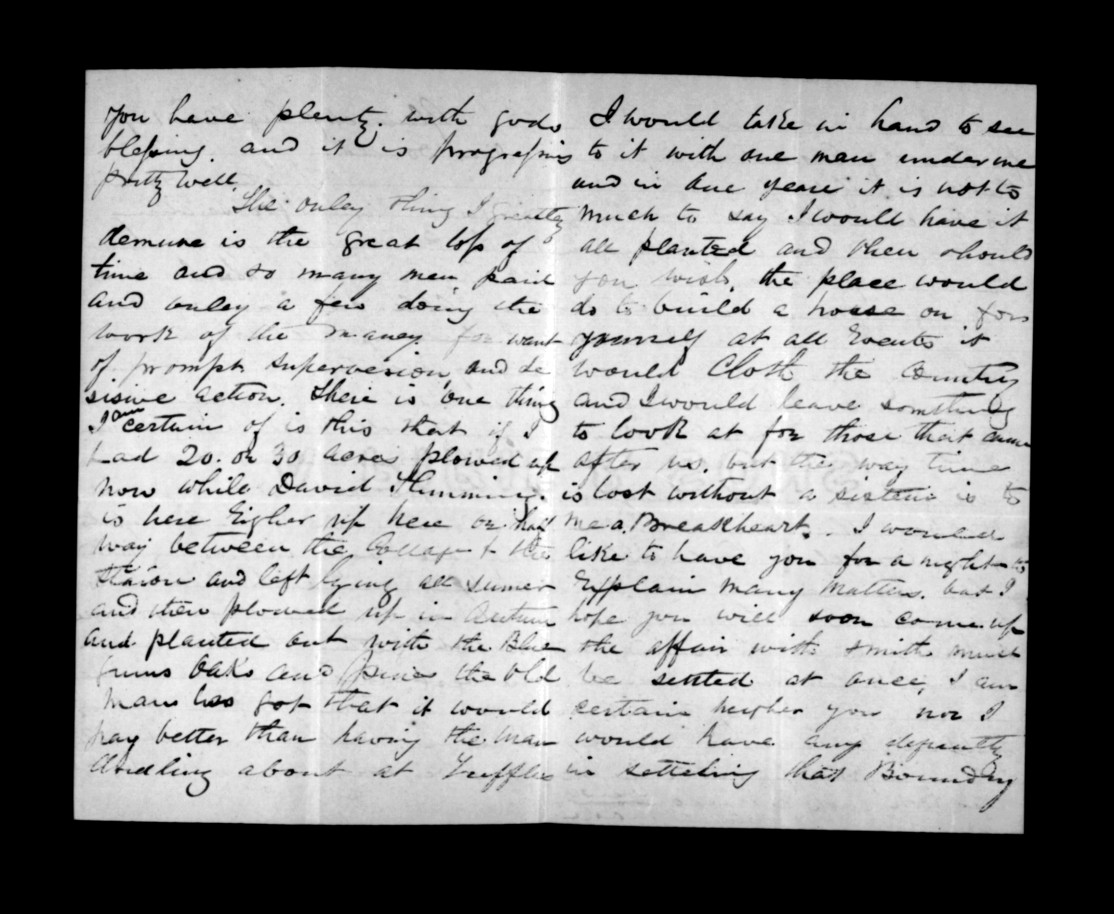 you have plenty. with gods
blessing. and it is progressing
pritty well.
The onley thing I greatly
demure is the great loss of
time and so many men paid
and onley a few doing the
work of the maney for want
of prompt supervesion and de
sisive action. Their is one thing
I am certain of is this that if I
had 20. or 30 acres plowed up
now while David Flimming.
is here Eigher up here or half
way between the Cottage & the
Station and left lying all sumer
and then plowed up in Autum
and planted out with the Blue
gums Oaks and pines the Old
Man has got that it would
pay better than having the man
about at Triffles
I would take in hand to see
to it with one man under me
and in one year it is not to
much to say I would have it
all planted and then should
you wish. the place would
do to build a house on for
yourself at all Events it
would Cloth the Country
and I would leave something
to look at for those that came
after us. but the way time
is lost without a sistem is to
me a Breakheart. I would
like to have you for a night to
Explain many Matters. but I
hope you will soon come up
the affair with Smith must
be setted at once, I am
certain neigher you nor I
would have any
in setteling that Boundry